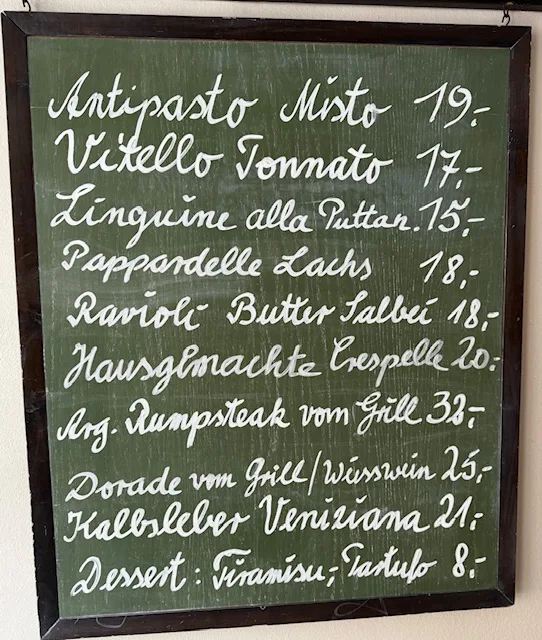 Antipasto Misto 19,-
Vitello Tonnato 17,-
Linguine alla Puttan. 15,-
Pappardelle Lachs 18,-
Ravioli Butter Salbei 18,-
Hausgemachte Crespelle 20.-
Arg. Rumpsteak vom Grill 32,-
Dorade vom Grill/Weisswein 25,-
Kalbsleber Veniziana 21,-
Dessert: Tiramisu,- Tartufo 8,-